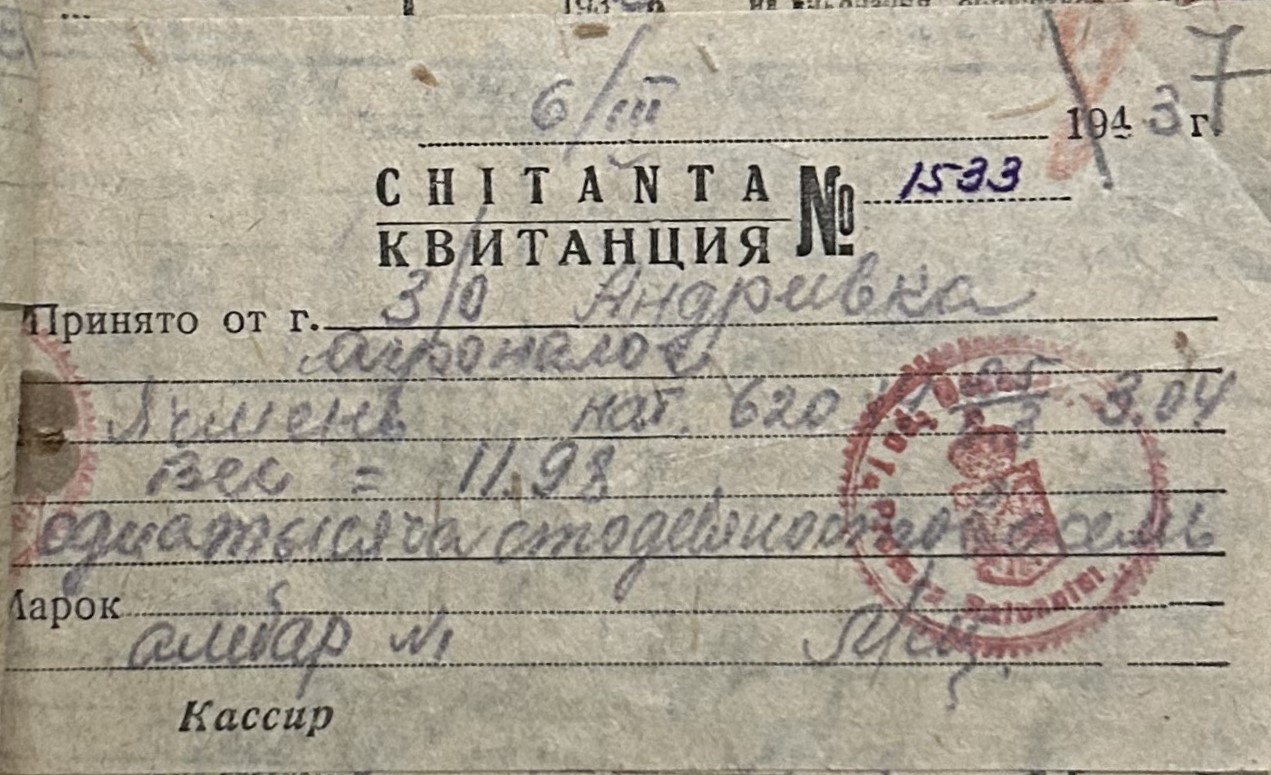 7
6/III 1943 г.
CHITANTA № 1533
КВИТАНЦИЯ
Принято от г. З/О Андриивка
агроналог
Ячмень нат. 620 3.04
Вес = 11.98
однатысяча стодевяносто восемь
Марок
амбар №1
Кассир